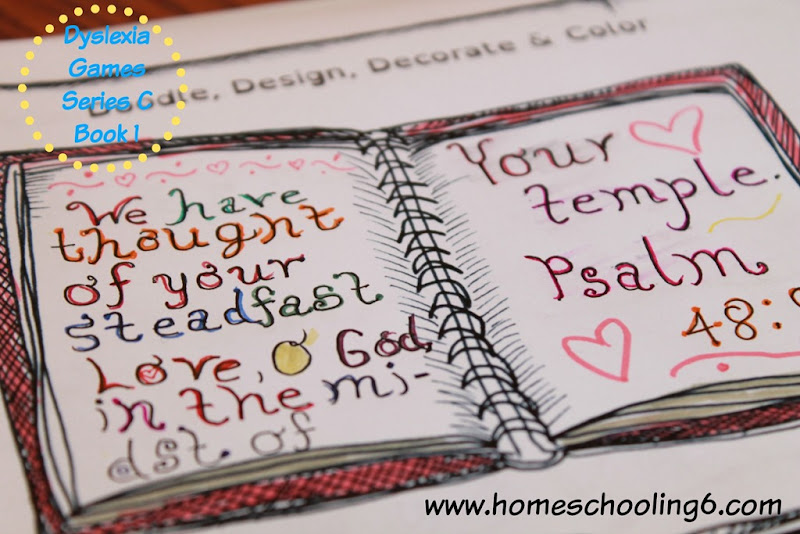 Dyslexia
Games
Series C
Book 1
Doodle, Design, Decorate & Color
We have
thought
of your
steadfast
Love, O God,
in the mi-
dst of
Your
temple.
Psalm
48:9
www.homeschooling6.com